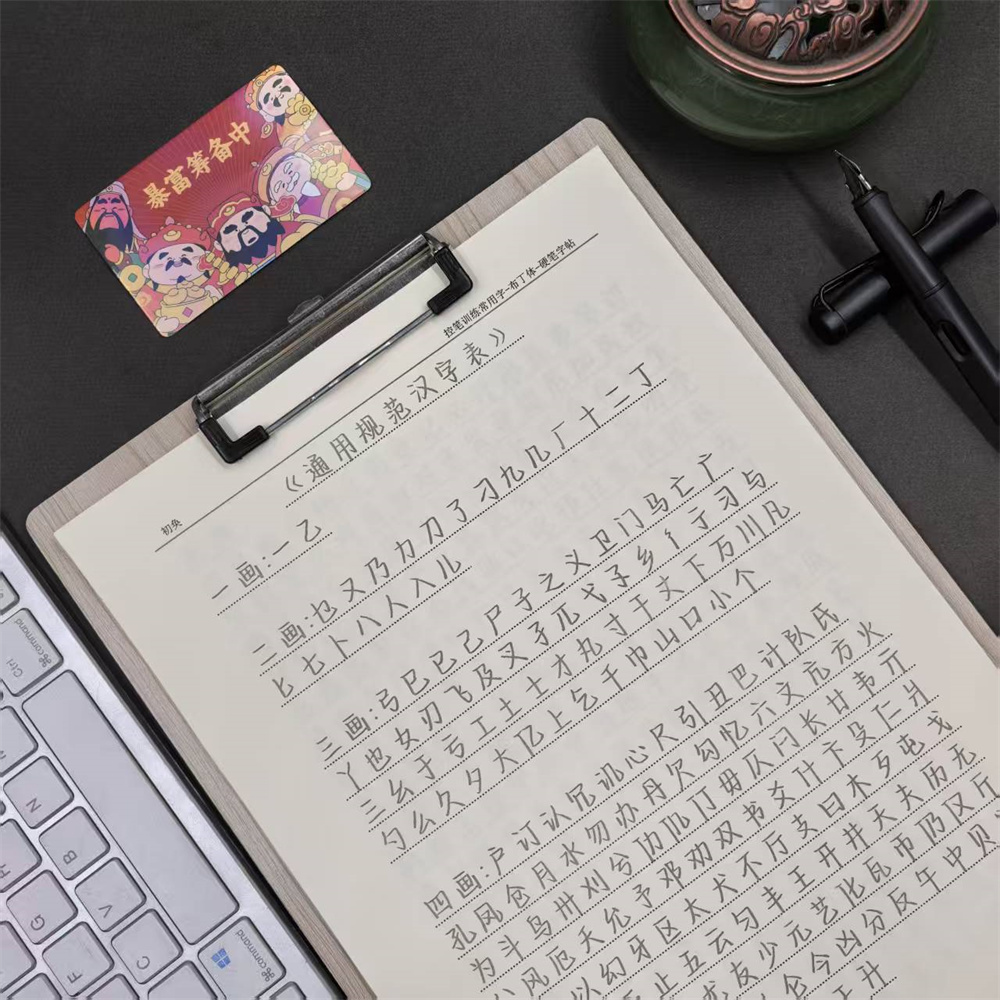 暴富筹备中
控笔训练常用字-布丁体-硬笔字帖
初奂
《通用规范汉字表》
一画:一乙
二画:乜又乃力刀了刁九几厂十二丁
匕七卜八人入儿
三画:弓巳已己尸孑之义卫门马亡广
丫也女刃飞及叉孑兀弋子乡亻于习与
三幺于亏工土士才丸寸干丈下万川凡
勺么久夕大亿上乞千巾山口小个
四画:户订认冗讥心尺引丑巴计队氏
孔风仓月水勿办丹欠勾忆六文亢方火
为斗乌卅刈兮
允予邓劝双书爻
以幻牙区太犬不厅支曰木歹屯戈
止五云匀丰王开井天夫历无
友少元艺化瓦币仍仅斤
仑今凶分反午中贝
command
Ctrl
command
N
B
V
G
F
C